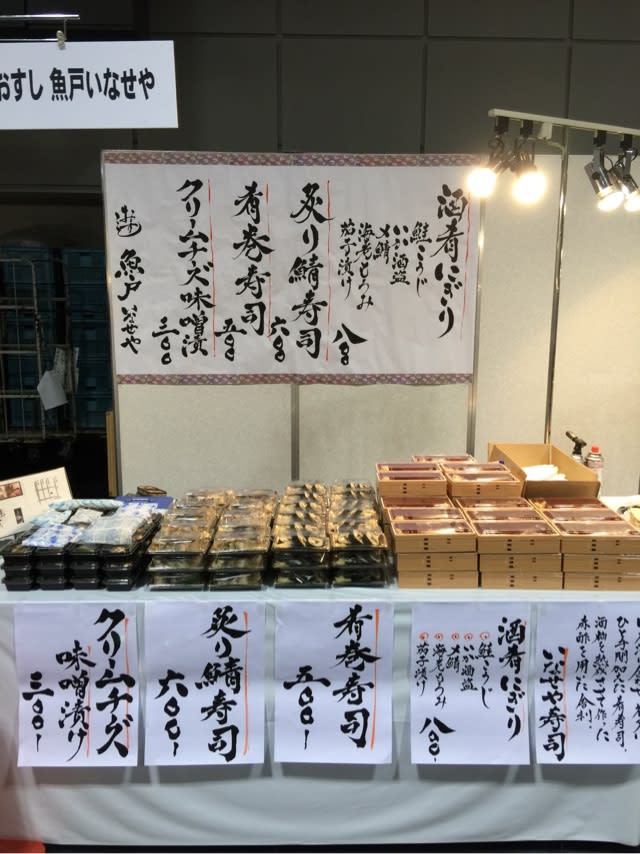 おすし 魚戸いなせや
酒肴にぎり
鮭こうじ
いか酒盗
〆鯖
海老もろみ
茄子漬け
八〇〇
炙り鯖寿司
六〇〇
肴巻寿司
五〇〇
クリームチーズ味噌漬
三〇〇
魚戸いなせや
クリームチーズ
味噌漬け
三〇〇-
炙り鯖寿司
六〇〇-
肴巻寿司
五〇〇-
酒肴にぎり
鮭こうじ
いか酒盗
〆鯖
海老もろみ
茄子漬け
八〇〇-
酒粕を熟させて作った
赤酢を用た舎利
いなせや寿司